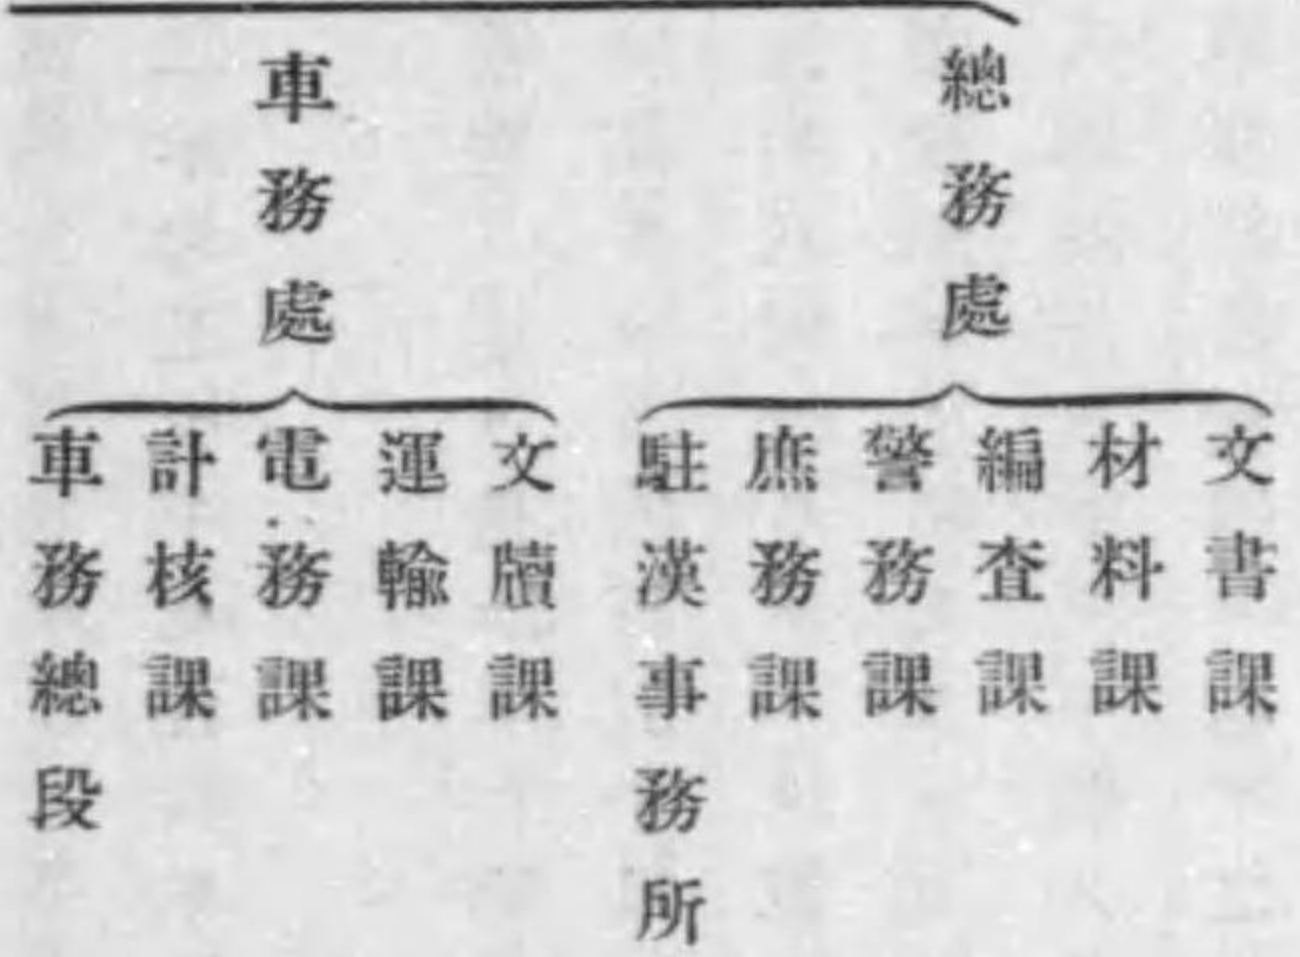 總務處
文書課
材料課
編査課
警務課
庶務課
駐漢事務所
車務處
文牘課
運輸課
電務課
計核課
車務總段